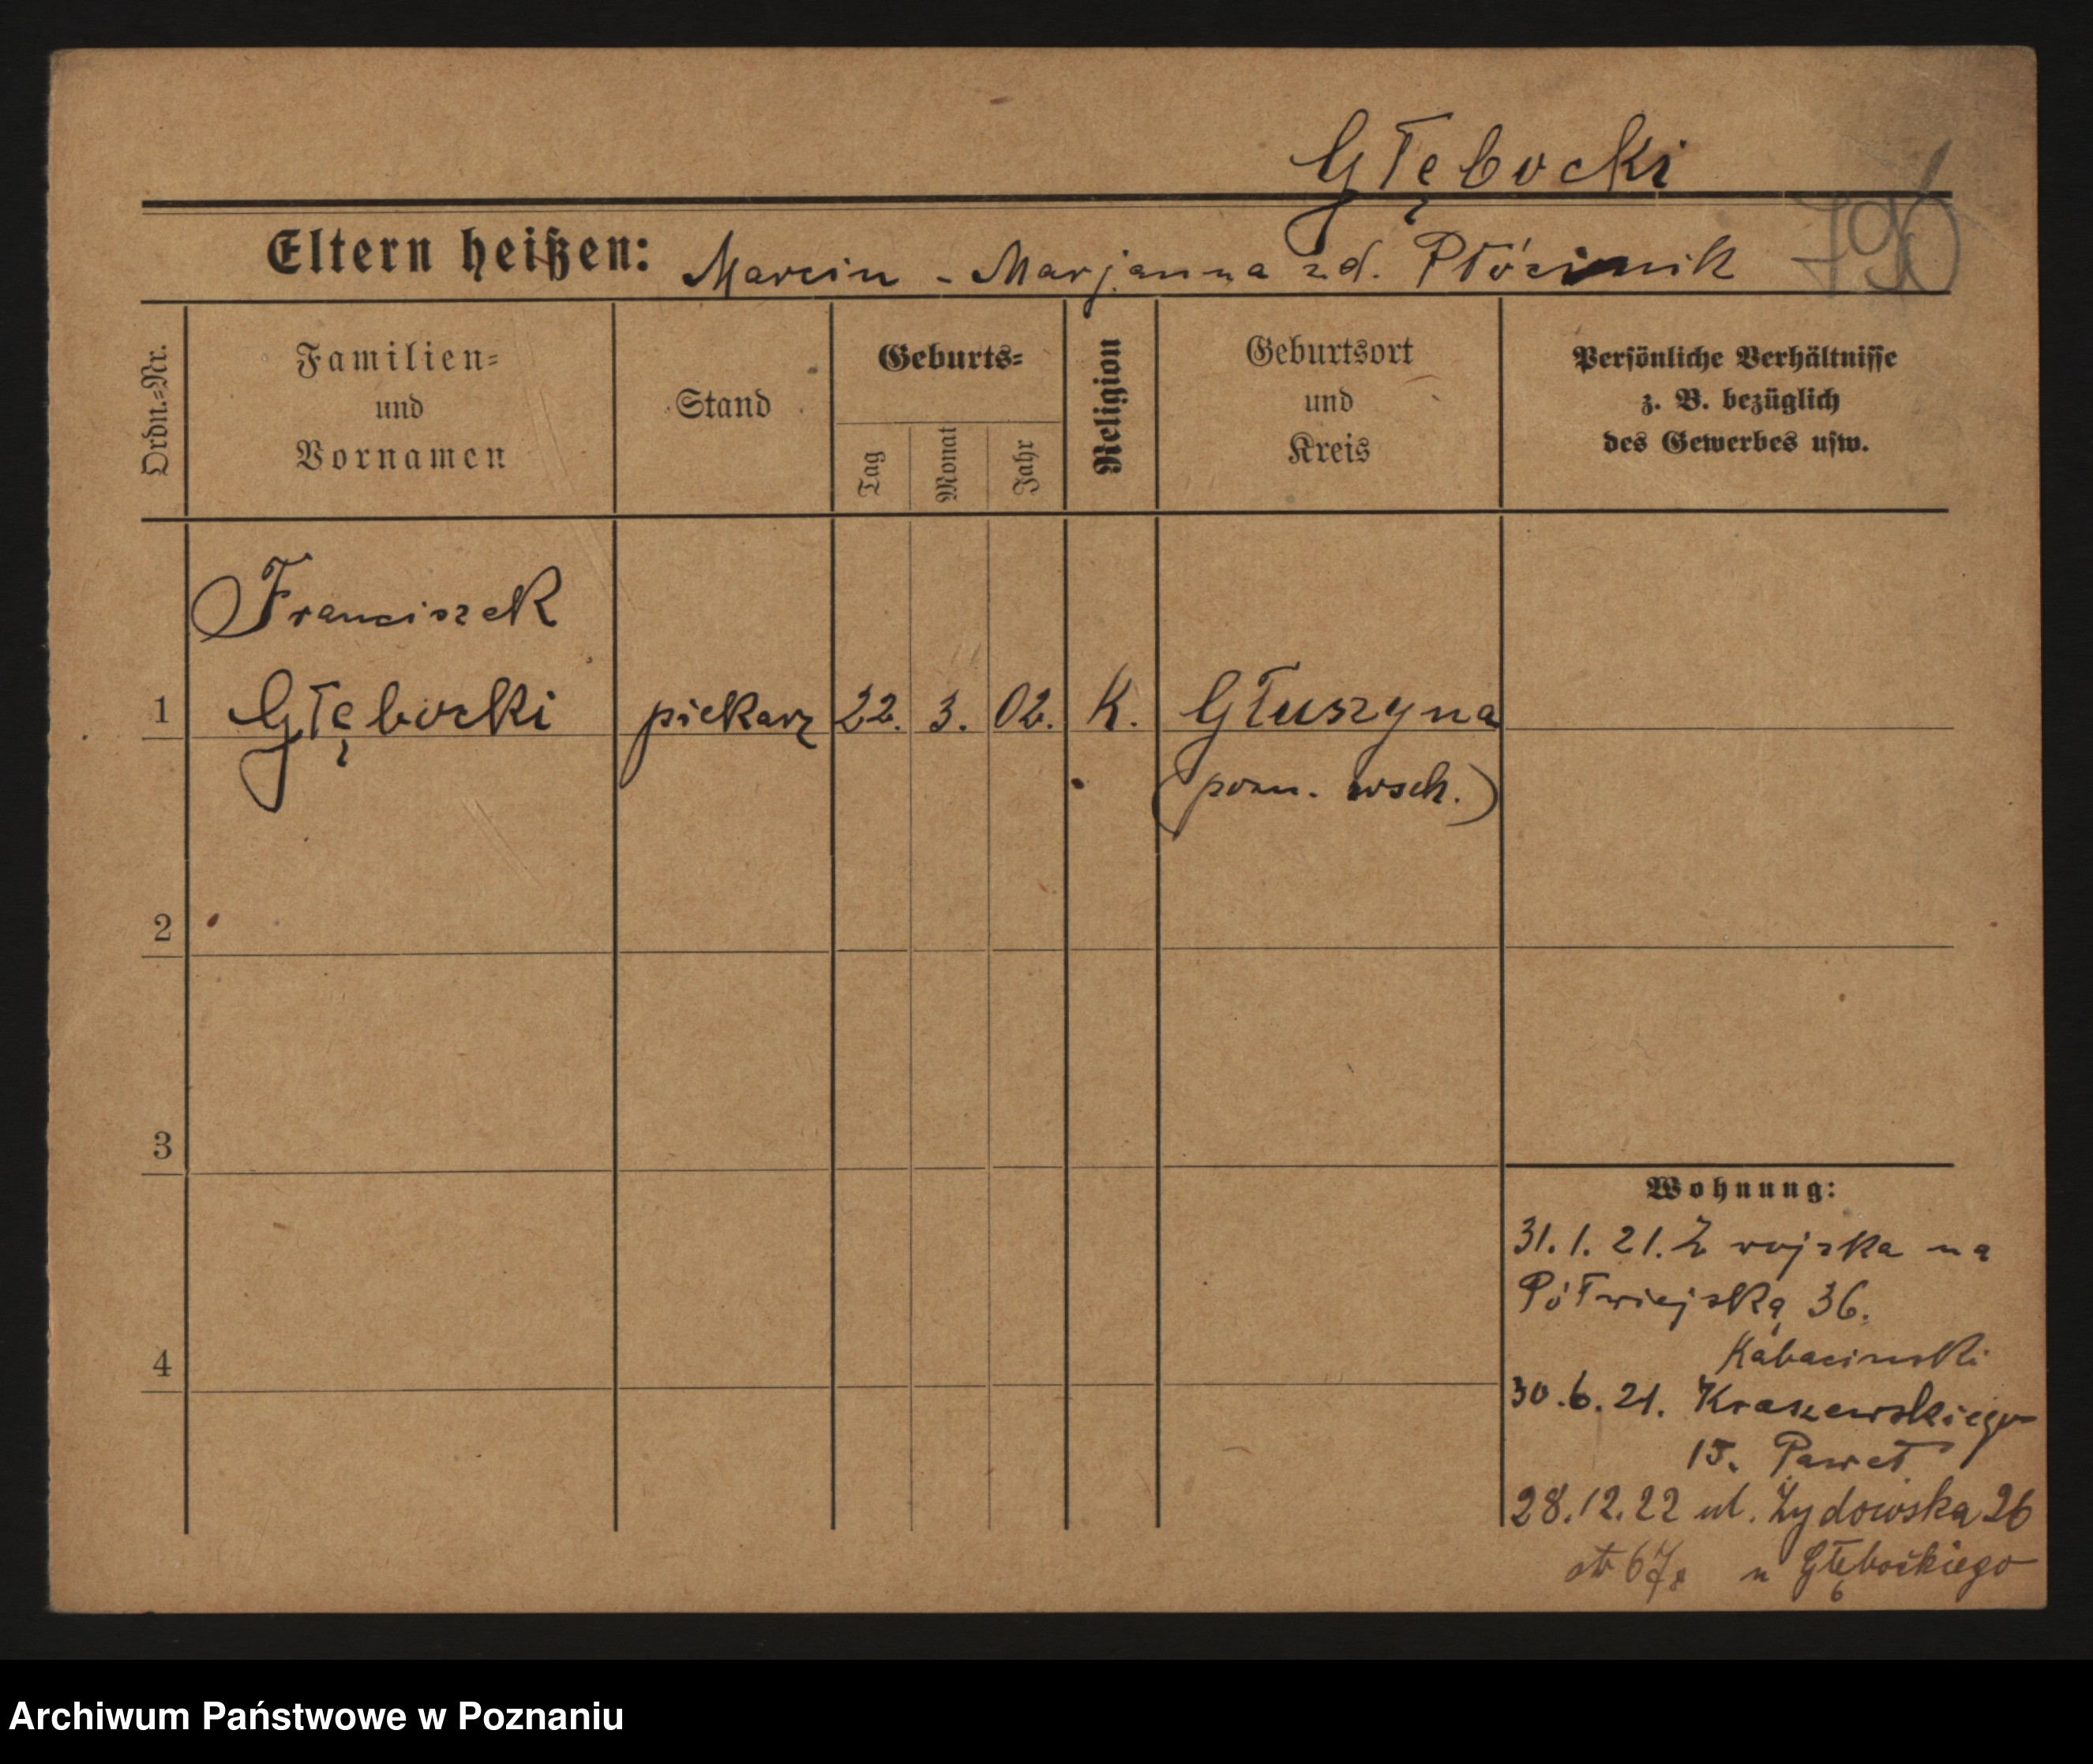 Głębocki
Eltern heißen: Marcin - Marjanna zd.
796
Ordn.=Nr.
Familien=
und
Vornamen
Stand
Geburts=
Tag
Monat
Jahr
Religion
Geburtsort
und
Kreis
Persönliche Verhältnisse
z. B. bezüglich
des Gewerbes usw.
Franciszek
1 Głębocki piekarz 22. 3. 02. K. Głuszyna
(pozn. wsch.)
2
3
4
Wohnung:
31. 1. 21. Z wojska na
Półwiejską 36.
Kabacinski
30.6.21. Kraszewskiego
15. Paweł
28.12.22 ul. Żydowska 26
u Głębockiego
Archiwum Państwowe w Poznaniu